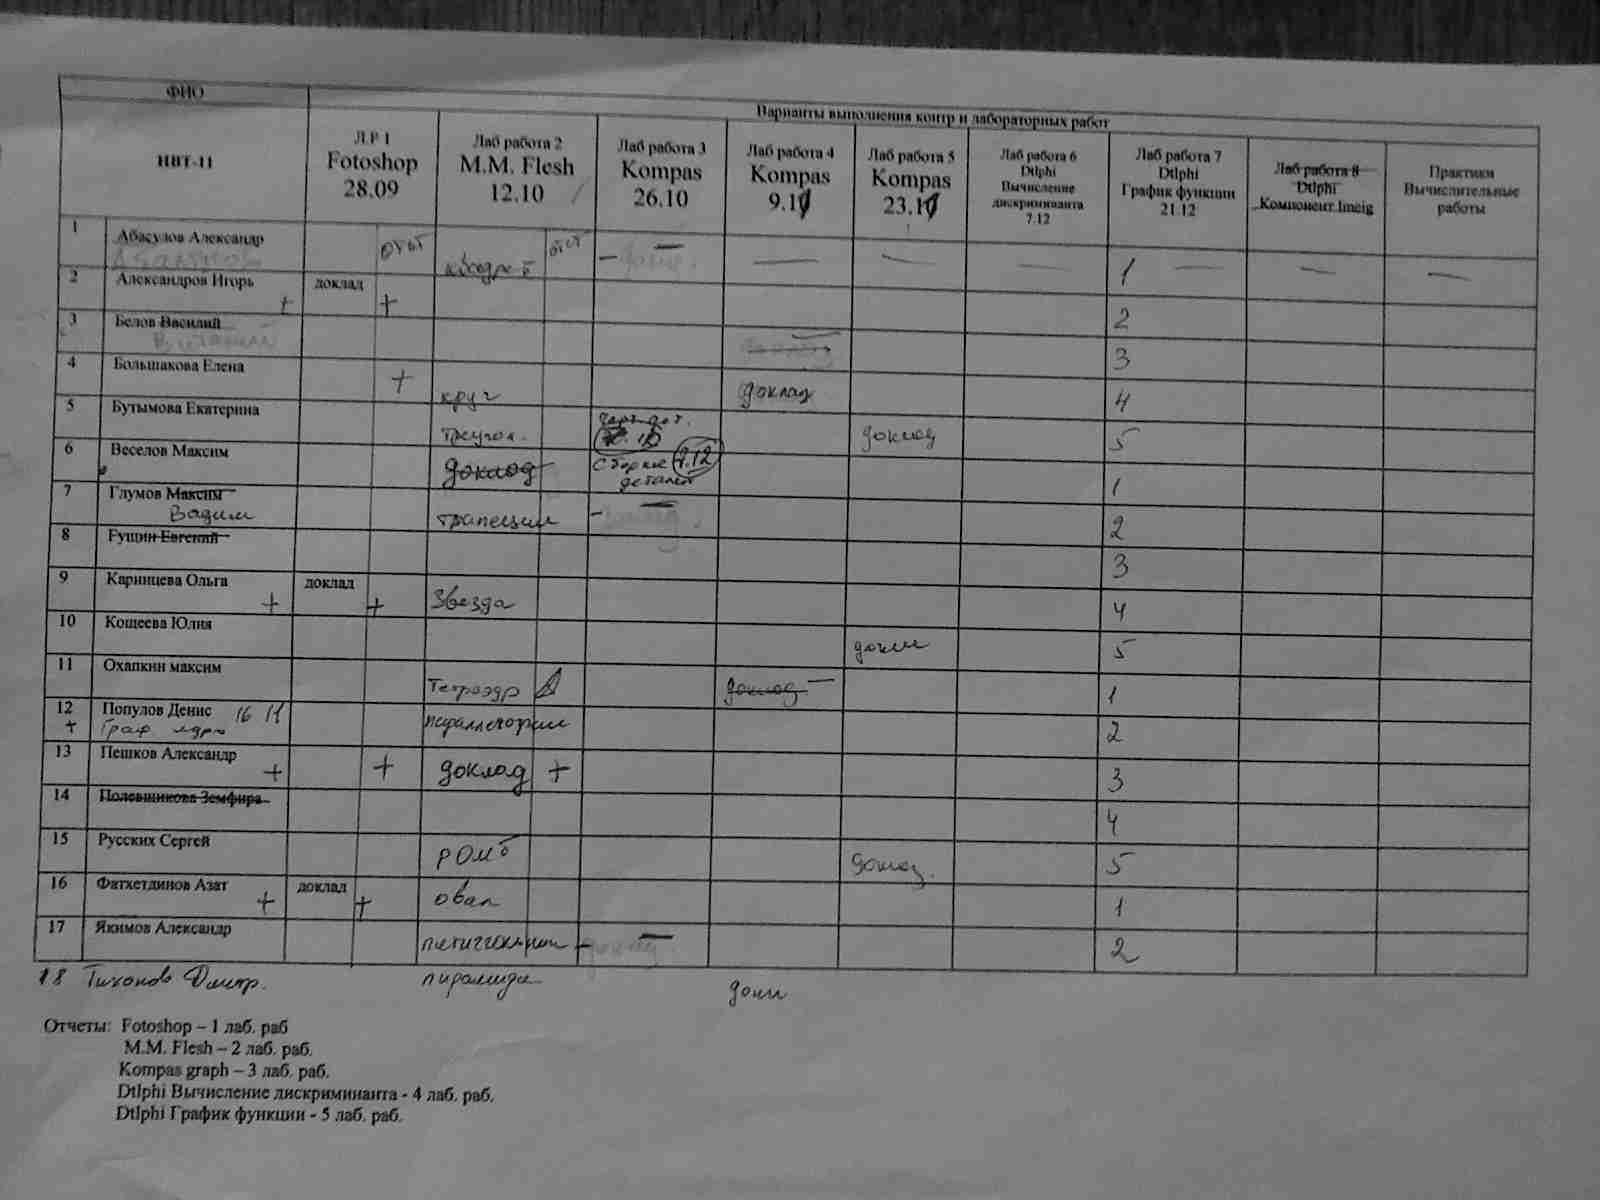 ФИО
Варианты выполнения контр и лабораторных работ
ИВТ-11
Л.Р 1
Fotoshop
28.09
Лаб работа 2
M.M. Flesh
12.10
Лаб работа 3
Kompas
26.10
Лаб работа 4
Kompas
9.11
Лаб работа 5
Kompas
23.11
Лаб работа 6
Dtlphi
Вычисление
дискриминанта
7.12
Лаб работа 7
Dtlphi
График функции
21.12
Лаб работа 8
Dtlphi
Компонент Imeig
Практики
Вычислительные
работы
1 Абасулов Александр отчет квадрат отчет – – — — — 1 — — —
2 Александров Игорь + доклад + 2
3 Белов Василий 3
Виталий
4 Большакова Елена + круг доклад 4
5 Бутымова Екатерина треугол. доклад 5
6 Веселов Максим доклад Сборка 7.12 1
деталей
7 Глумов Максим трапеции – 2
Вадим
8 Гущин Евгений 3
9 Каринцева Ольга + доклад + Звезда 4
10 Кощеева Юлия докл 5
11 Охапкин максим Тетраэдр доклад – 1
12 Популов Денис 16 11 2
+ Граф. ядро
13 Пешков Александр + + доклад + 3
14 Полевщикова Земфира 4
15 Русских Сергей ромб доклад. 5
16 Фатхетдинов Азат + доклад + овал 1
17 Якимов Александр доклад 2
18 Тихонов Дмитр. пирамида докл
Отчеты: Fotoshop – 1 лаб. раб
M.M. Flesh – 2 лаб. раб.
Kompas graph – 3 лаб. раб.
Dtlphi Вычисление дискриминанта - 4 лаб. раб.
Dtlphi График функции - 5 лаб. раб.